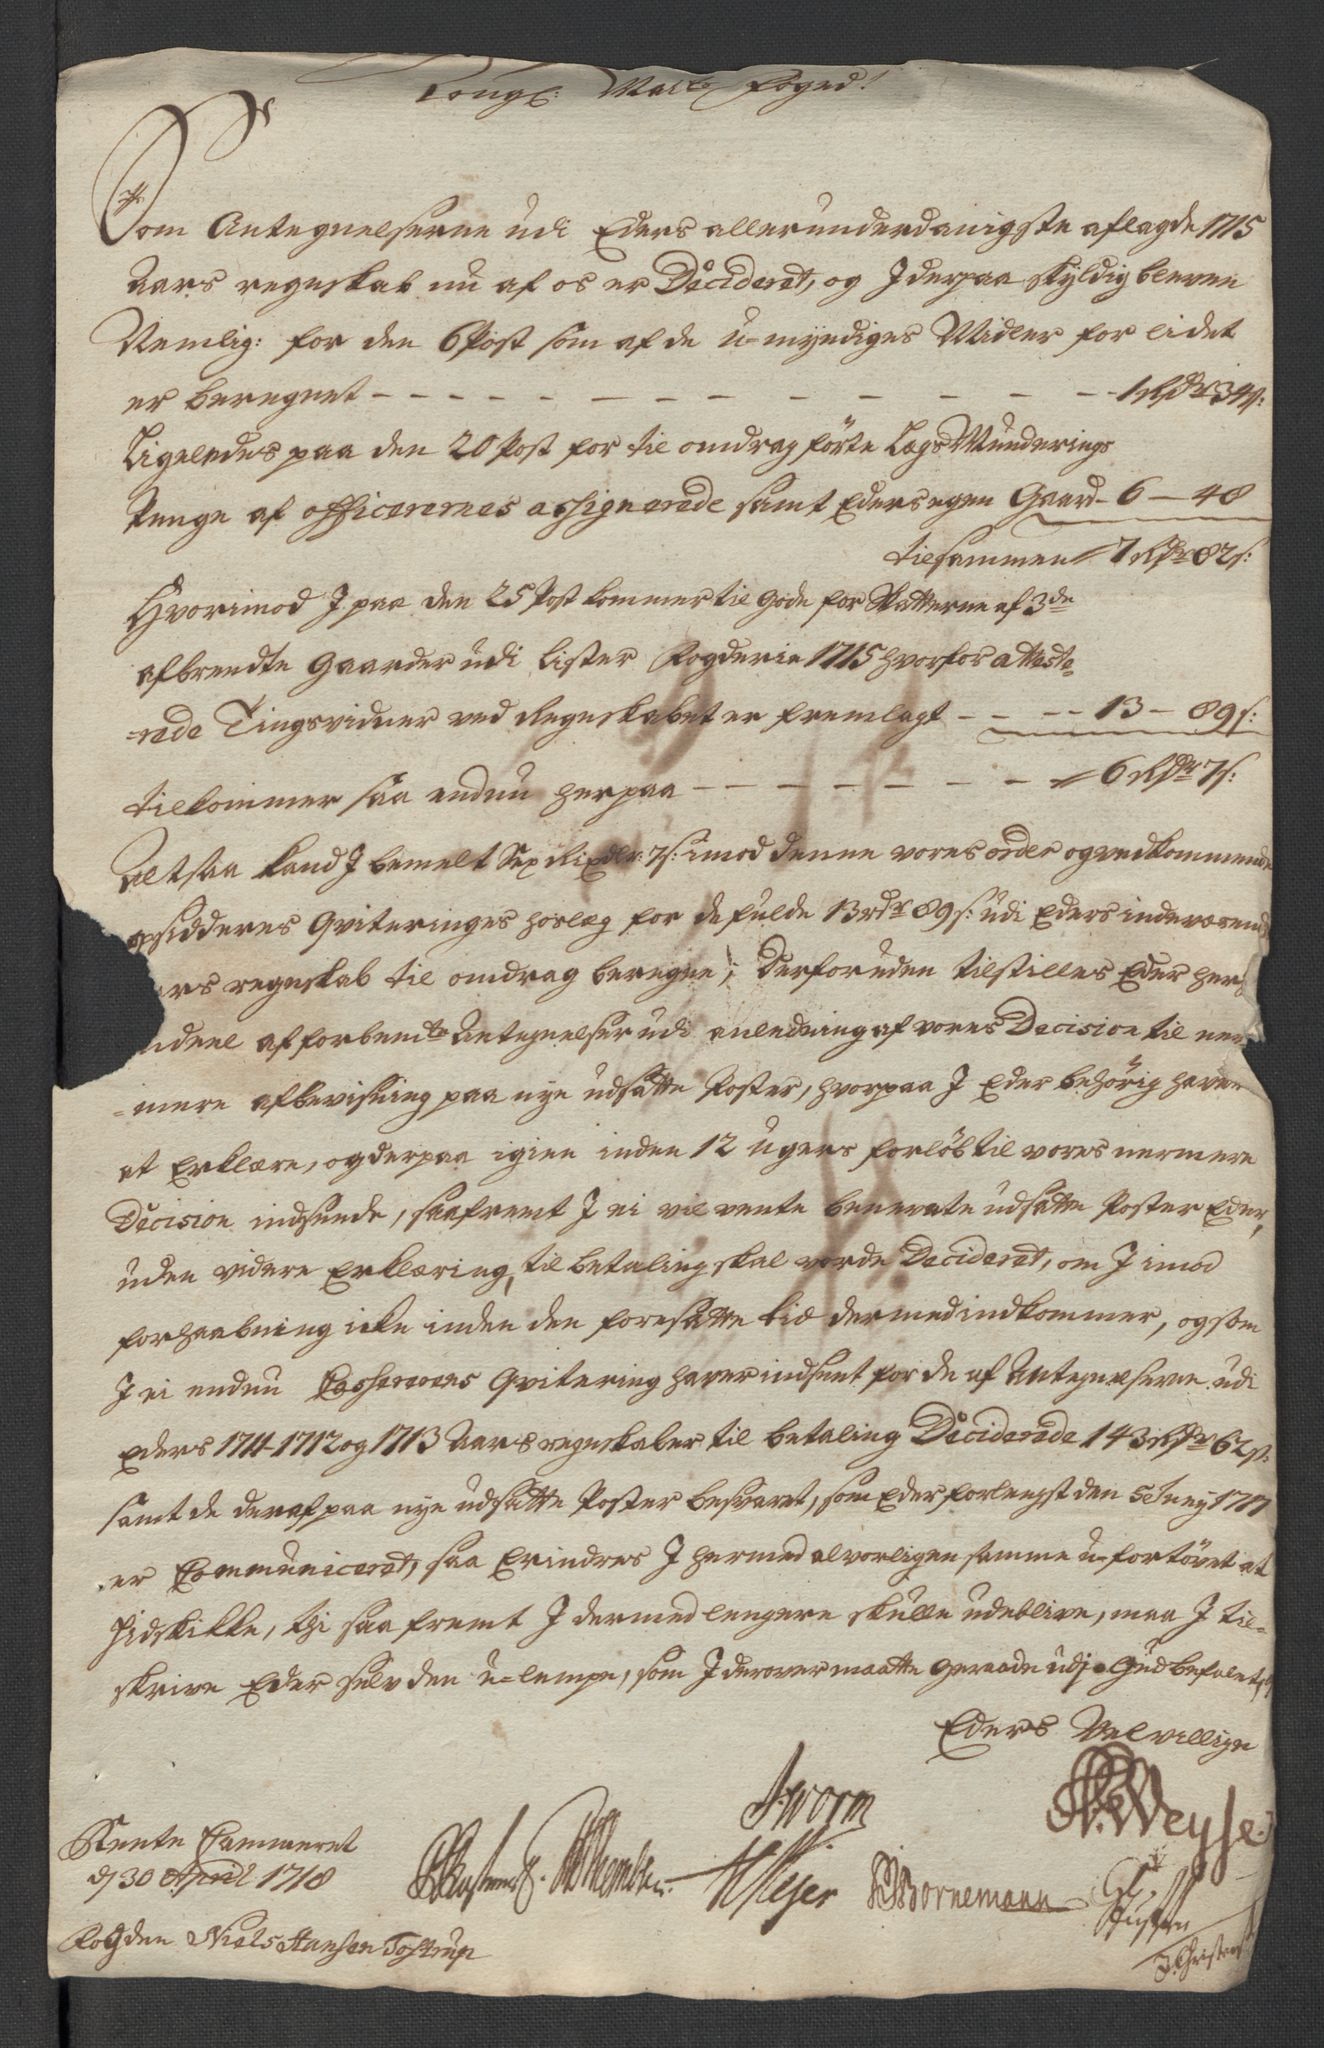 Kongl: Mayts Foged!
Som Antegnelserne udi Eders allerunderdanigste aflagde 1715
Aars regnskab nu af os er Decideret, og I derpaa skyldig bleven
Nemlig: for den 6 Post som af de u-myndiges Midler for lidet
er beregnet - - - - - - - - - - - - 1 Rdr 34 s:
Ligeledes paa den 20 Post for til omdrag förte Legs Munderings
Penge af officerernes assignerede samt Eders egen Gaard - 6 - 48
tilsammen 7 Rdr 82 s:
Hvorimod I paa den 25 Post kommer til gode for Skatterne af 3de
afbrendte Gaarder udi Lister Fogderie 1715 hvorfor atteste-
-rede Tingsvidner ved Regnskabet er fremlagt - - - - 13 - 89 s:
tilkommer saa endnu herpaa - - - - - - 6 Rdr 7 s:
Altsaa kand I bemelt Sex Rixdlr: 7 s: imod denne vores order og vedkommende
opsidderes Qviteringes horlæg for de fulde 13 rdr 89 s: udi Eders indeværende
ars regnskab til omdrag beregne; Derforuden tilstilles Eder her
ndeel af forbemte Antegnelser udi anledning af vores Decision til ner
-mere afbevisning paa nye udsatte Poster, hvorpaa I Eder behörig haver
at Erklære, og derpaa igien inden 12 ugers forlöb til vores nermere
Decision indsende, saafremt I ei vil vente benevnte udsatte Poster Eder,
uden videre Erklæring, til betaling skal vorde Decideret, om I imod
forhaabning icke inden den foresatte tid dermed indkommer, og som
I ei endnu Casserernes Qvitering haver indsent for de af Antegnelserne udi
Eders 1711-1712 og 1713 Aars regnskaber til betaling Deciderede 143 Rdr 62 s:
samt de deraf paa nye udsatte Poster besvaret, som Eder forlengst den 5 Juny 1717
er Communiceret, saa Erindres I hermed alvorligen samme u-fortövet at
hidskikke, thi saa fremt I dermed lengere skulle udeblive, maa I til-
skrive Eder selv den u-lempe, som I derover maatte geraade udj. Gud befalet,
Eders Velvillige
J. Worm
A. Weyse
Rente Cammeret
d 30 April 1718
H Meyer
Bornemann
Fogden Niels Hansen Tostrup